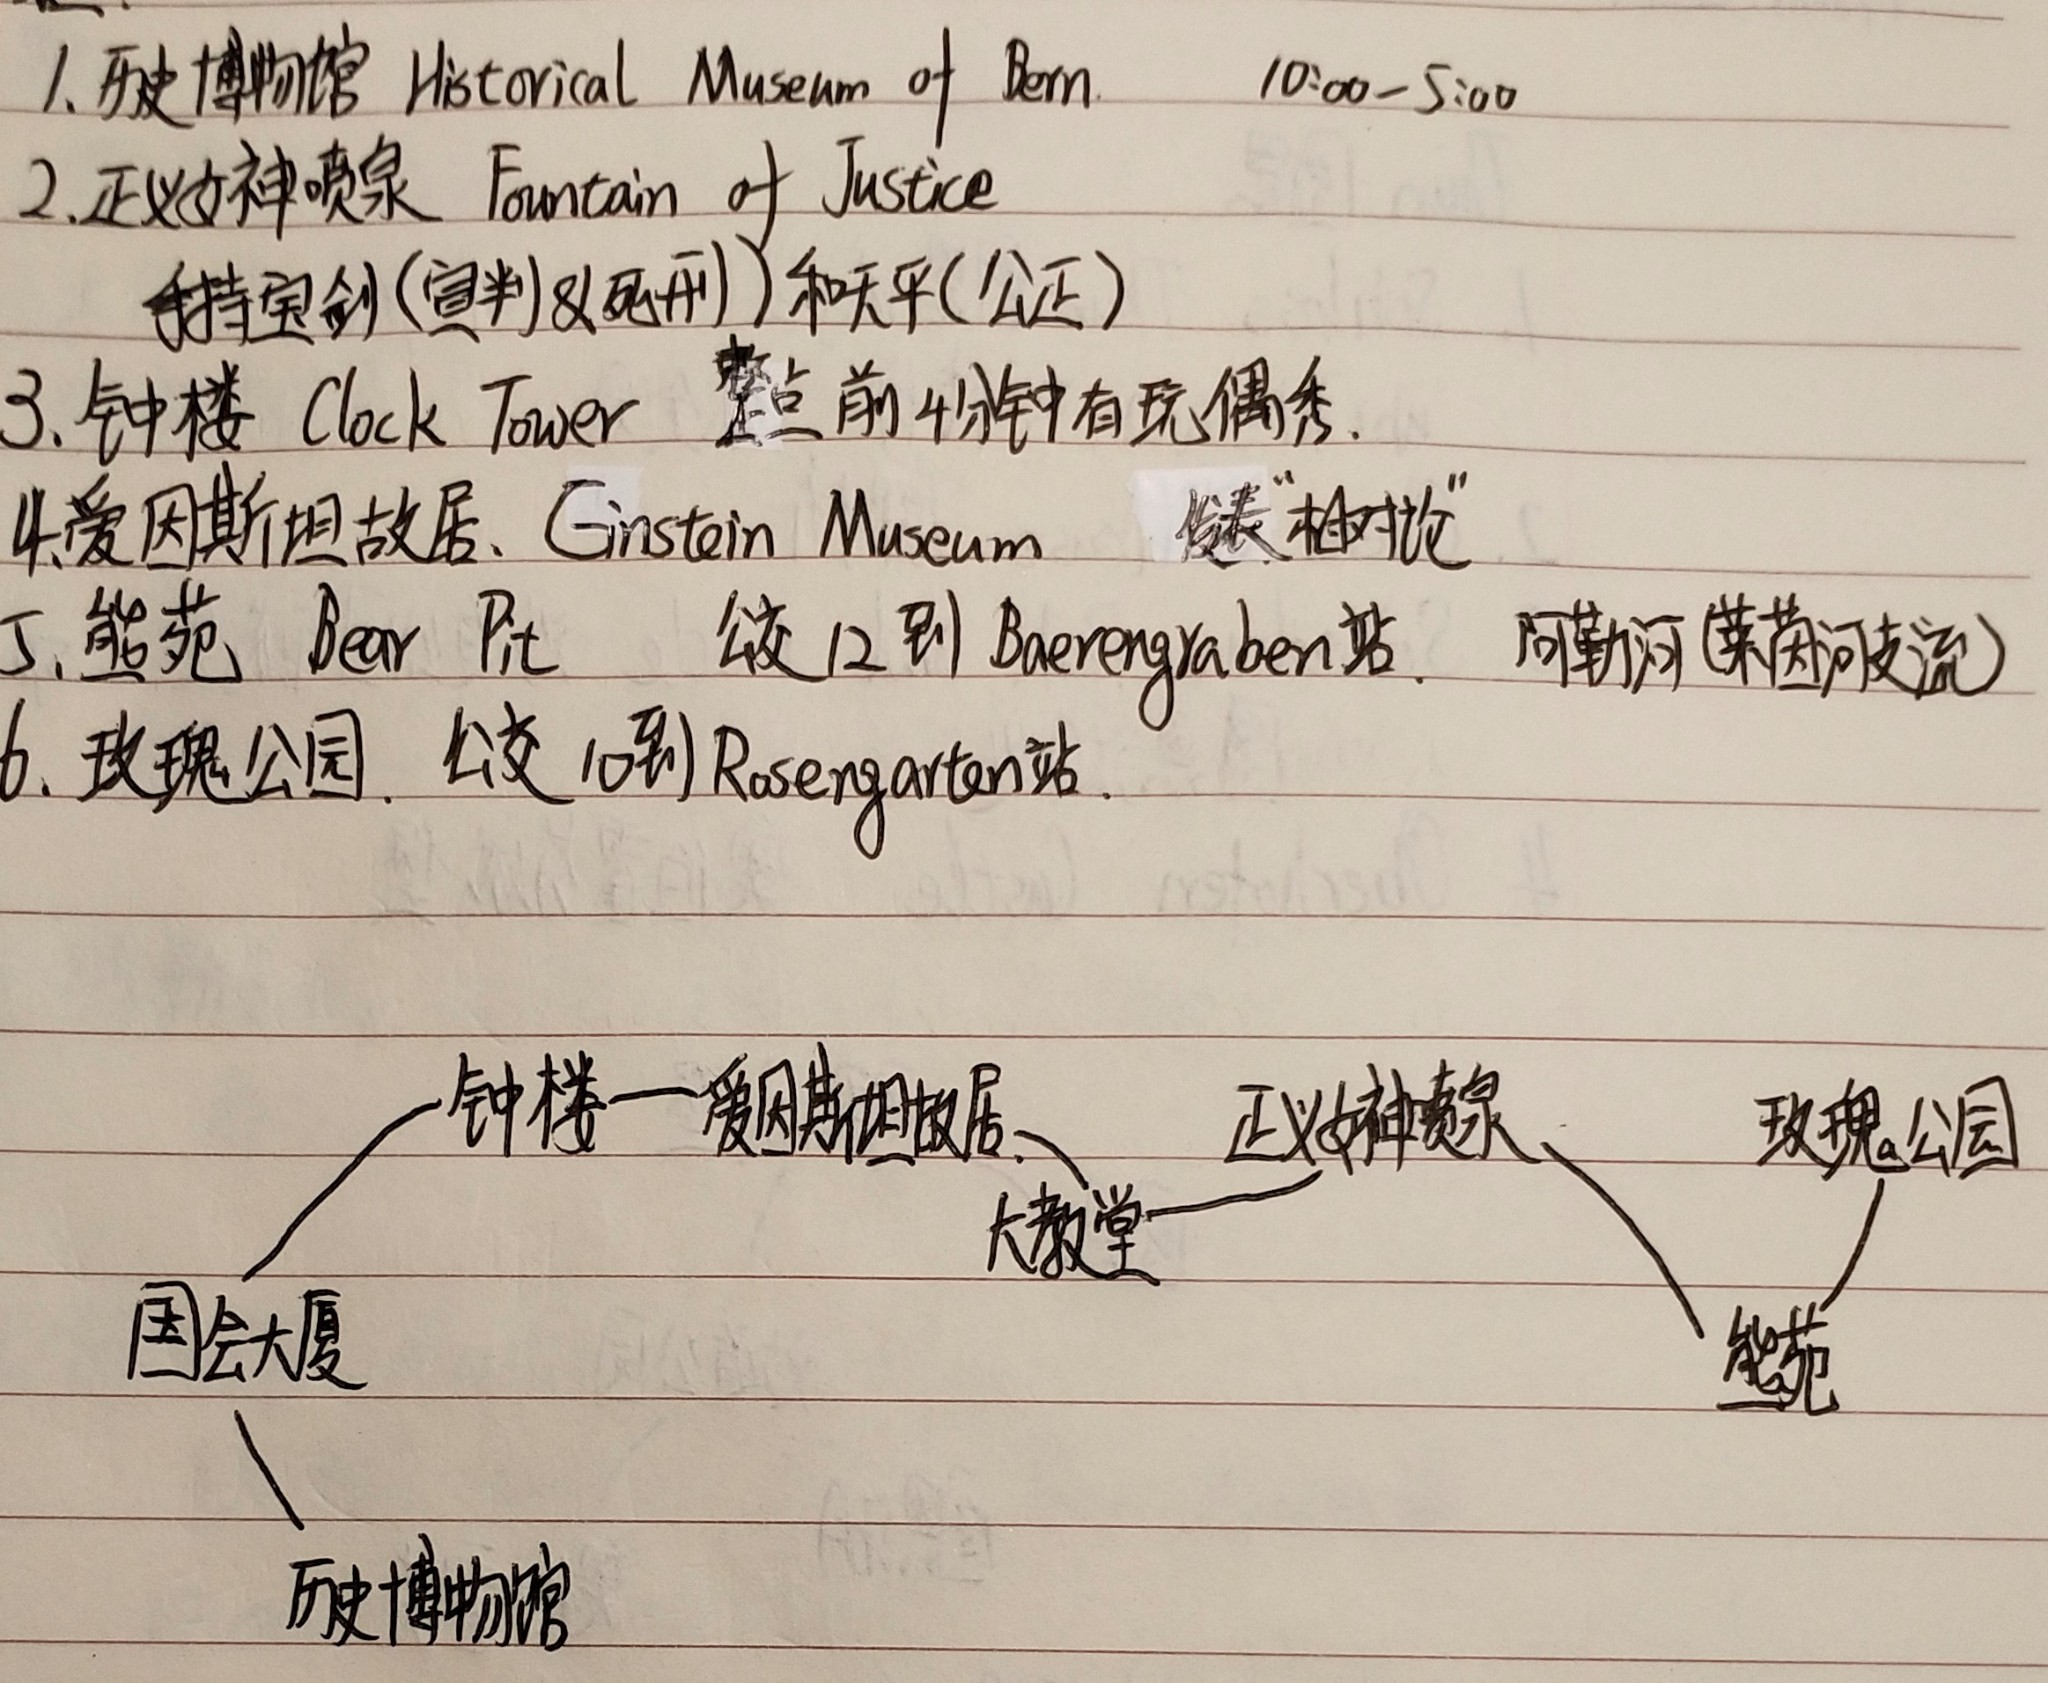 1. 历史博物馆 Historical Museum of Bern. 10:00-5:00
2. 正义女神喷泉 Fountain of Justice
手持宝剑(宣判&死刑))和天平(公正)
3. 钟楼 Clock Tower 整点前4分钟有玩偶秀.
4. 爱因斯坦故居、Einstein Museum 发表"相对论"
5. 熊苑 Bear Pit 公交12到Baerengraben站. 阿勒河(莱茵河支流)
6. 玫瑰公园. 公交10到Rosengarten站.
钟楼 爱因斯坦故居、 正义女神喷泉 玫瑰公园
大教堂
国会大厦 熊苑
历史博物馆